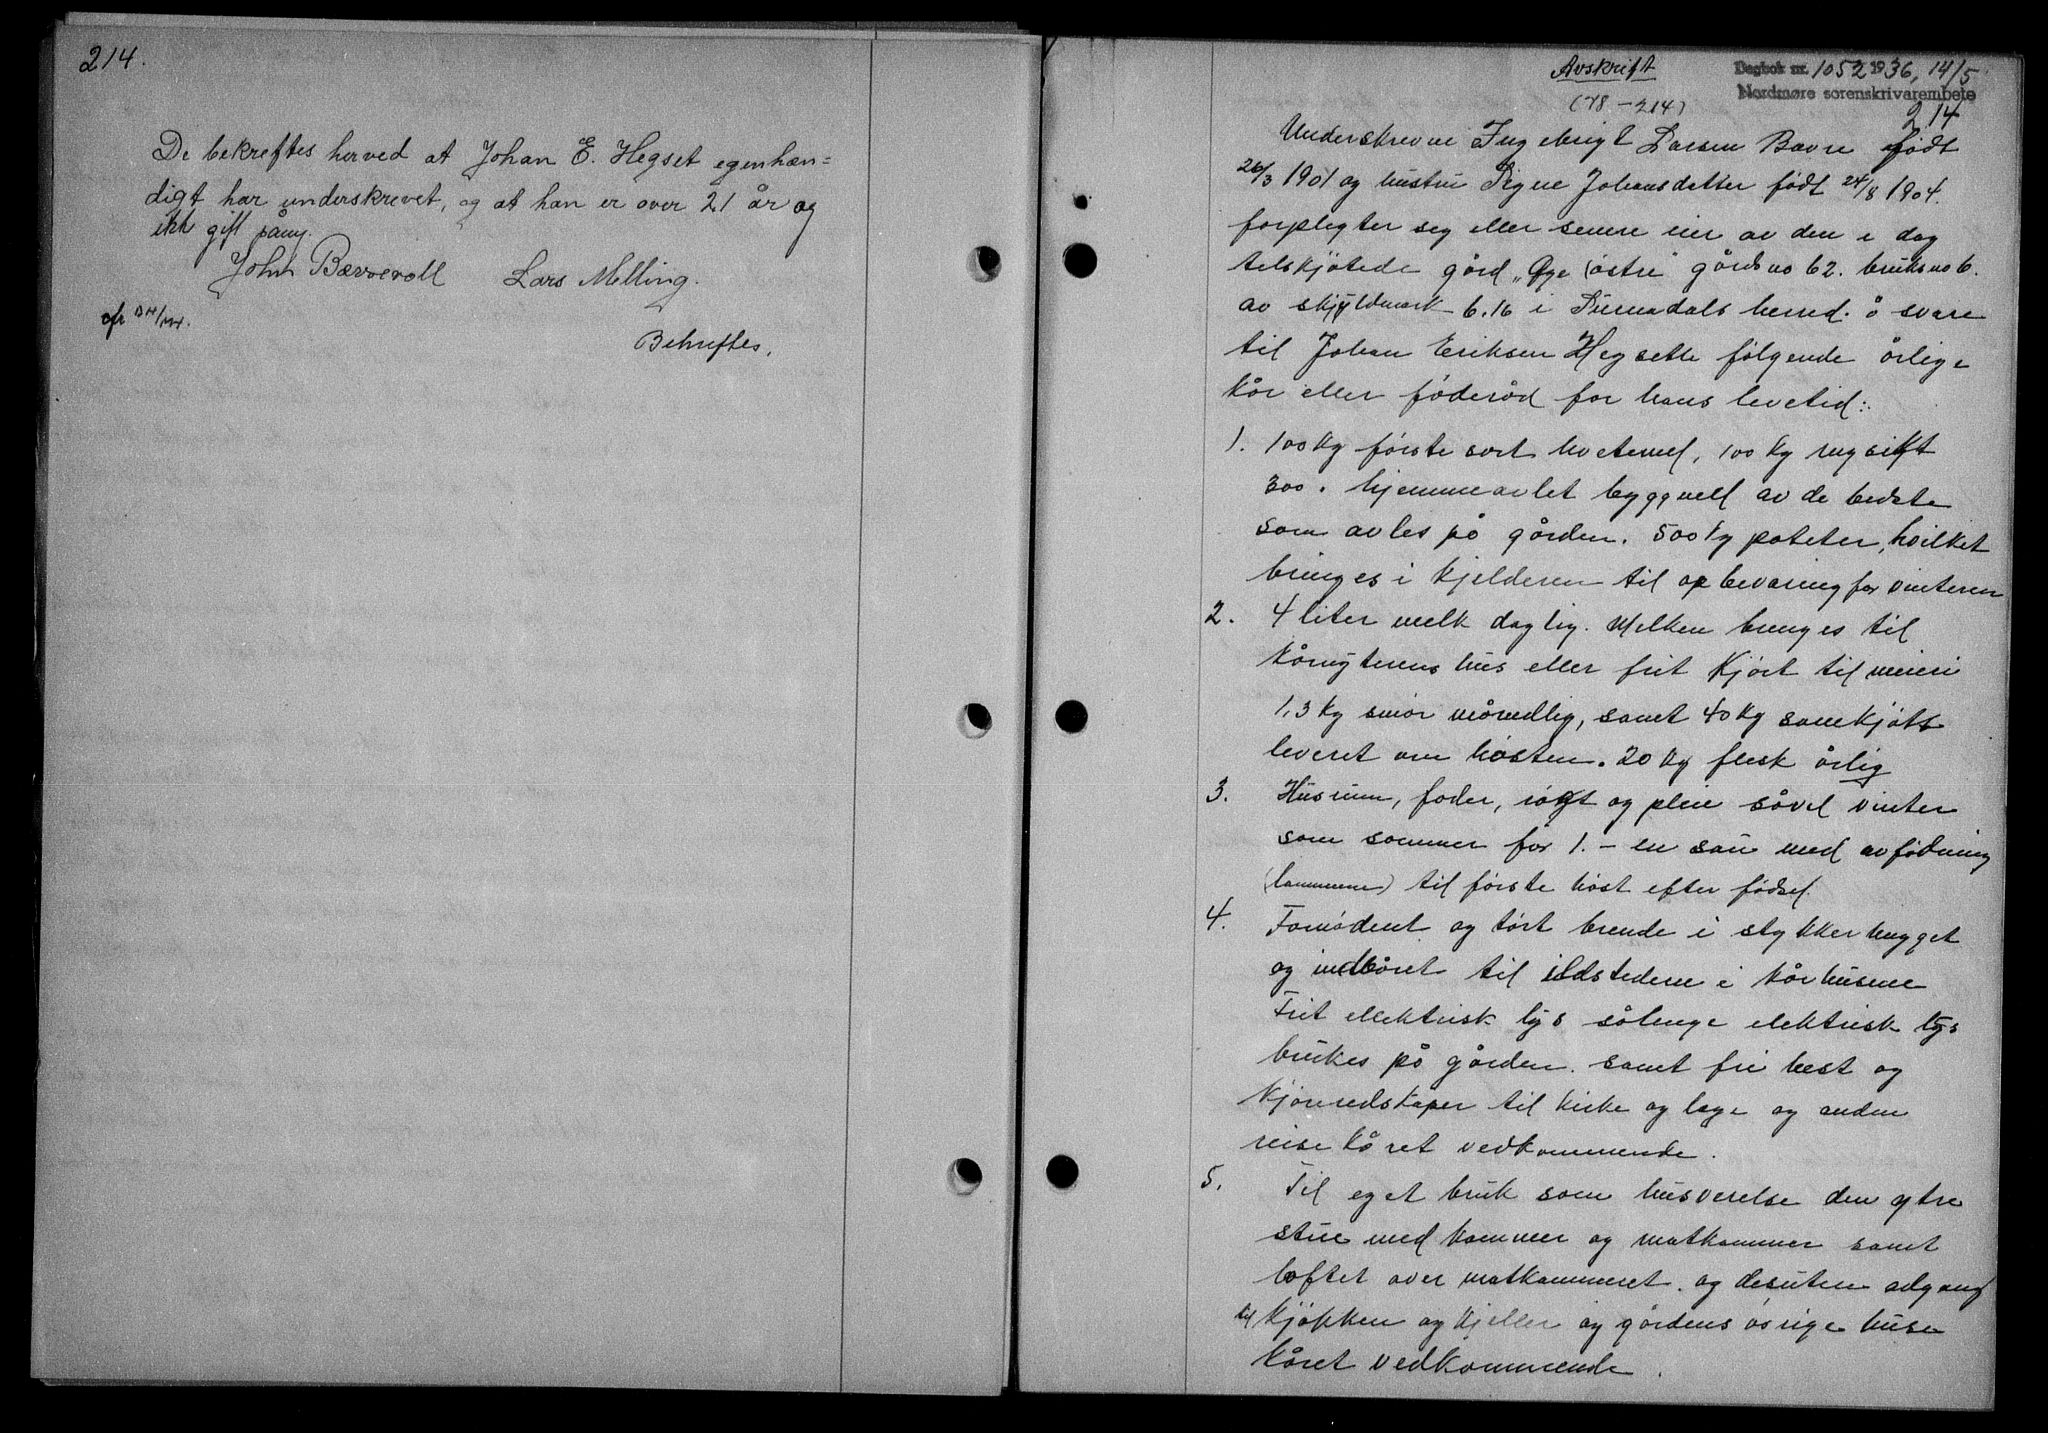 214.
De bekreftes herved at Johan E. Hegset egenhæn=
digt har underskrevet, og at han er over 21 år og
ikk gift påny.
John Bævrevoll Lars Melling.
Bekreftes.
Avskrift
(78-214)
Dagbok nr. 1052 1936, 14/5
Nordmøre sorenskrivarembete
214
Underskrevne Ingebrigt Larsen Bævre født
26/3 1901 og hustru Signe Johansdatter født 24/8 1904.
forpligter seg eller senere eier av den i dag
tilskjøtede gård „Øye østre" gårdsno 62. bruksno 6.
av skyldmark 6.16 i Surnadals herred. å svare
til Johan Eriksen Hegsette følgende årlige
kår eller føderåd for hans levetid:
1. 100 kg første sort hvetemel, 100 kg rugsikt
300 . hjemmeavlet byggmell av de bedste
som avles på gården. 500 kg poteter, hvilket
bringes i kjelderen til opbevaring for vinteren
2. 4 liter melk daglig. Melken bringes til
kårnyterens hus eller frit kjørt til meieri
1,3 kg smør månedlig, samt 40 kg sauekjøtt
leveret om høsten. 20 kg flesk årlig
3. Husrum, foder, røgt og pleie såvel vinter
som sommer for 1. - en sau med avfødning
(lammene) til første høst efter fødsel.
4. Fornødent og tørt brende i stykker hugget
og indbåret til ildstedene i kårhusene
Frit ellektrisk lys sålenge elektrisk lys
brukes på gården. samt fri hest og
kjøreredskaper til kirke og læge og anden
reise kåret vedkommende.
5. Til eget bruk som husverelse den ytre
stue med kammer og matkammer samt
loftet over matkammeret. og desuten adgang
til kjøkken og kjeller og gårdens øvrige huse
kåret vedkommende.